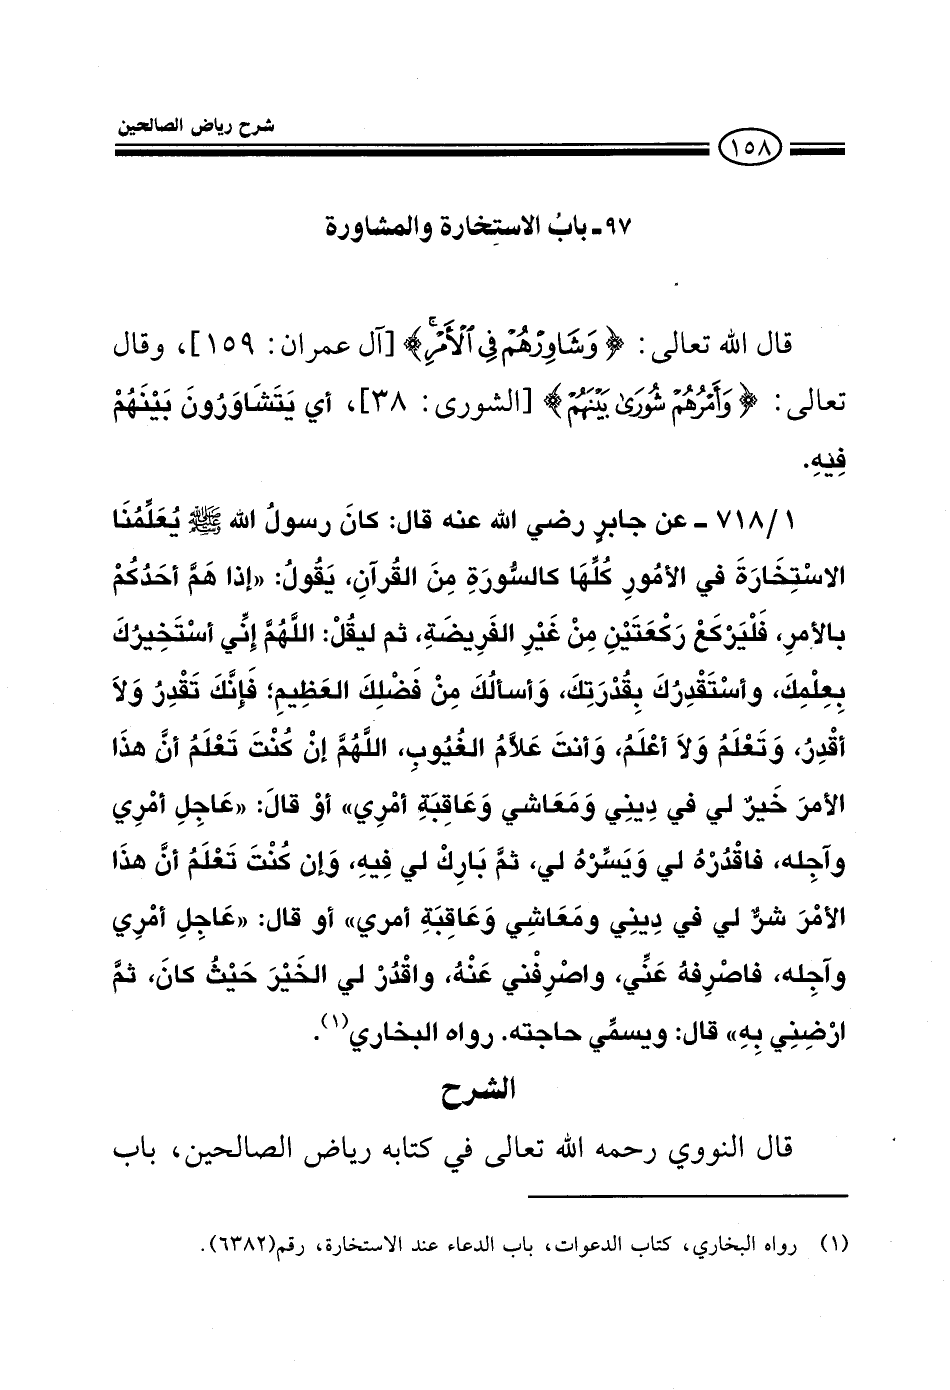 شرح رياض الصالحين
١٥٨
٩٧ ـ بابُ الاستِخارة والمشاورة
قال الله تعالى: ﴿وَشَاوِرْهُمْ فِي ٱلْأَمْرِۚ﴾ [آل عمران: ١٥٩]، وقال
تعالى: ﴿وَأَمْرُهُمْ شُورَىٰ بَيْنَهُمْ﴾ [الشورى: ٣٨]، أي يَتَشَاوَرُونَ بَيْنَهُمْ
فِيْهِ.
٧١٨/١ ـ عن جابرٍ رضي الله عنه قال: كانَ رسولُ الله ﷺ يُعَلِّمُنَا
الاسْتِخَارَةَ في الأمُورِ كُلِّهَا كالسُّورَةِ مِنَ القُرآنِ، يَقُولُ: «إذا هَمَّ أحَدُكُمْ
بالأمرِ، فَلْيَرْكَعْ رَكْعَتَيْنِ مِنْ غَيْرِ الفَرِيضَةِ، ثم ليقُلْ: اللَّهُمَّ إنِّي أسْتَخِيرُكَ
بِعِلْمِكَ، وأسْتَقْدِرُكَ بِقُدْرَتِكَ، وَأسألُكَ مِنْ فَضْلِكَ العَظِيمِ؛ فَإنَّكَ تَقْدِرُ وَلاَ
أقْدِرُ، وَتَعْلَمُ وَلاَ أعْلَمُ، وَأنتَ عَلاَّمُ الغُيُوبِ، اللَّهُمَّ إنْ كُنْتَ تَعْلَمُ أنَّ هذَا
الأمرَ خَيرٌ لي في دِيني وَمَعَاشي وَعَاقِبَةِ أمْرِي» أوْ قالَ: «عَاجِلِ أمْرِي
وآجِله، فاقْدُرْهُ لي وَيَسِّرْهُ لي، ثمَّ بَارِكْ لي فِيهِ، وَإن كُنْتَ تَعْلَمُ أنَّ هذَا
الأمْرَ شرٌّ لي في دِيني ومَعَاشِي وَعَاقِبَةِ أمري» أو قال: «عَاجِلِ أمْرِي
وآجِله، فاصْرِفهُ عَنِّي، واصْرِفْني عَنْهُ، واقْدُرْ لي الخَيْرَ حَيْثُ كانَ، ثمَّ
ارْضِنِي بِهِ» قال: ويسمِّي حاجته. رواه البخاري(١).
الشرح
قال النووي رحمه الله تعالى في كتابه رياض الصالحين، باب
(١) رواه البخاري، كتاب الدعوات، باب الدعاء عند الاستخارة، رقم(٦٣٨٢).